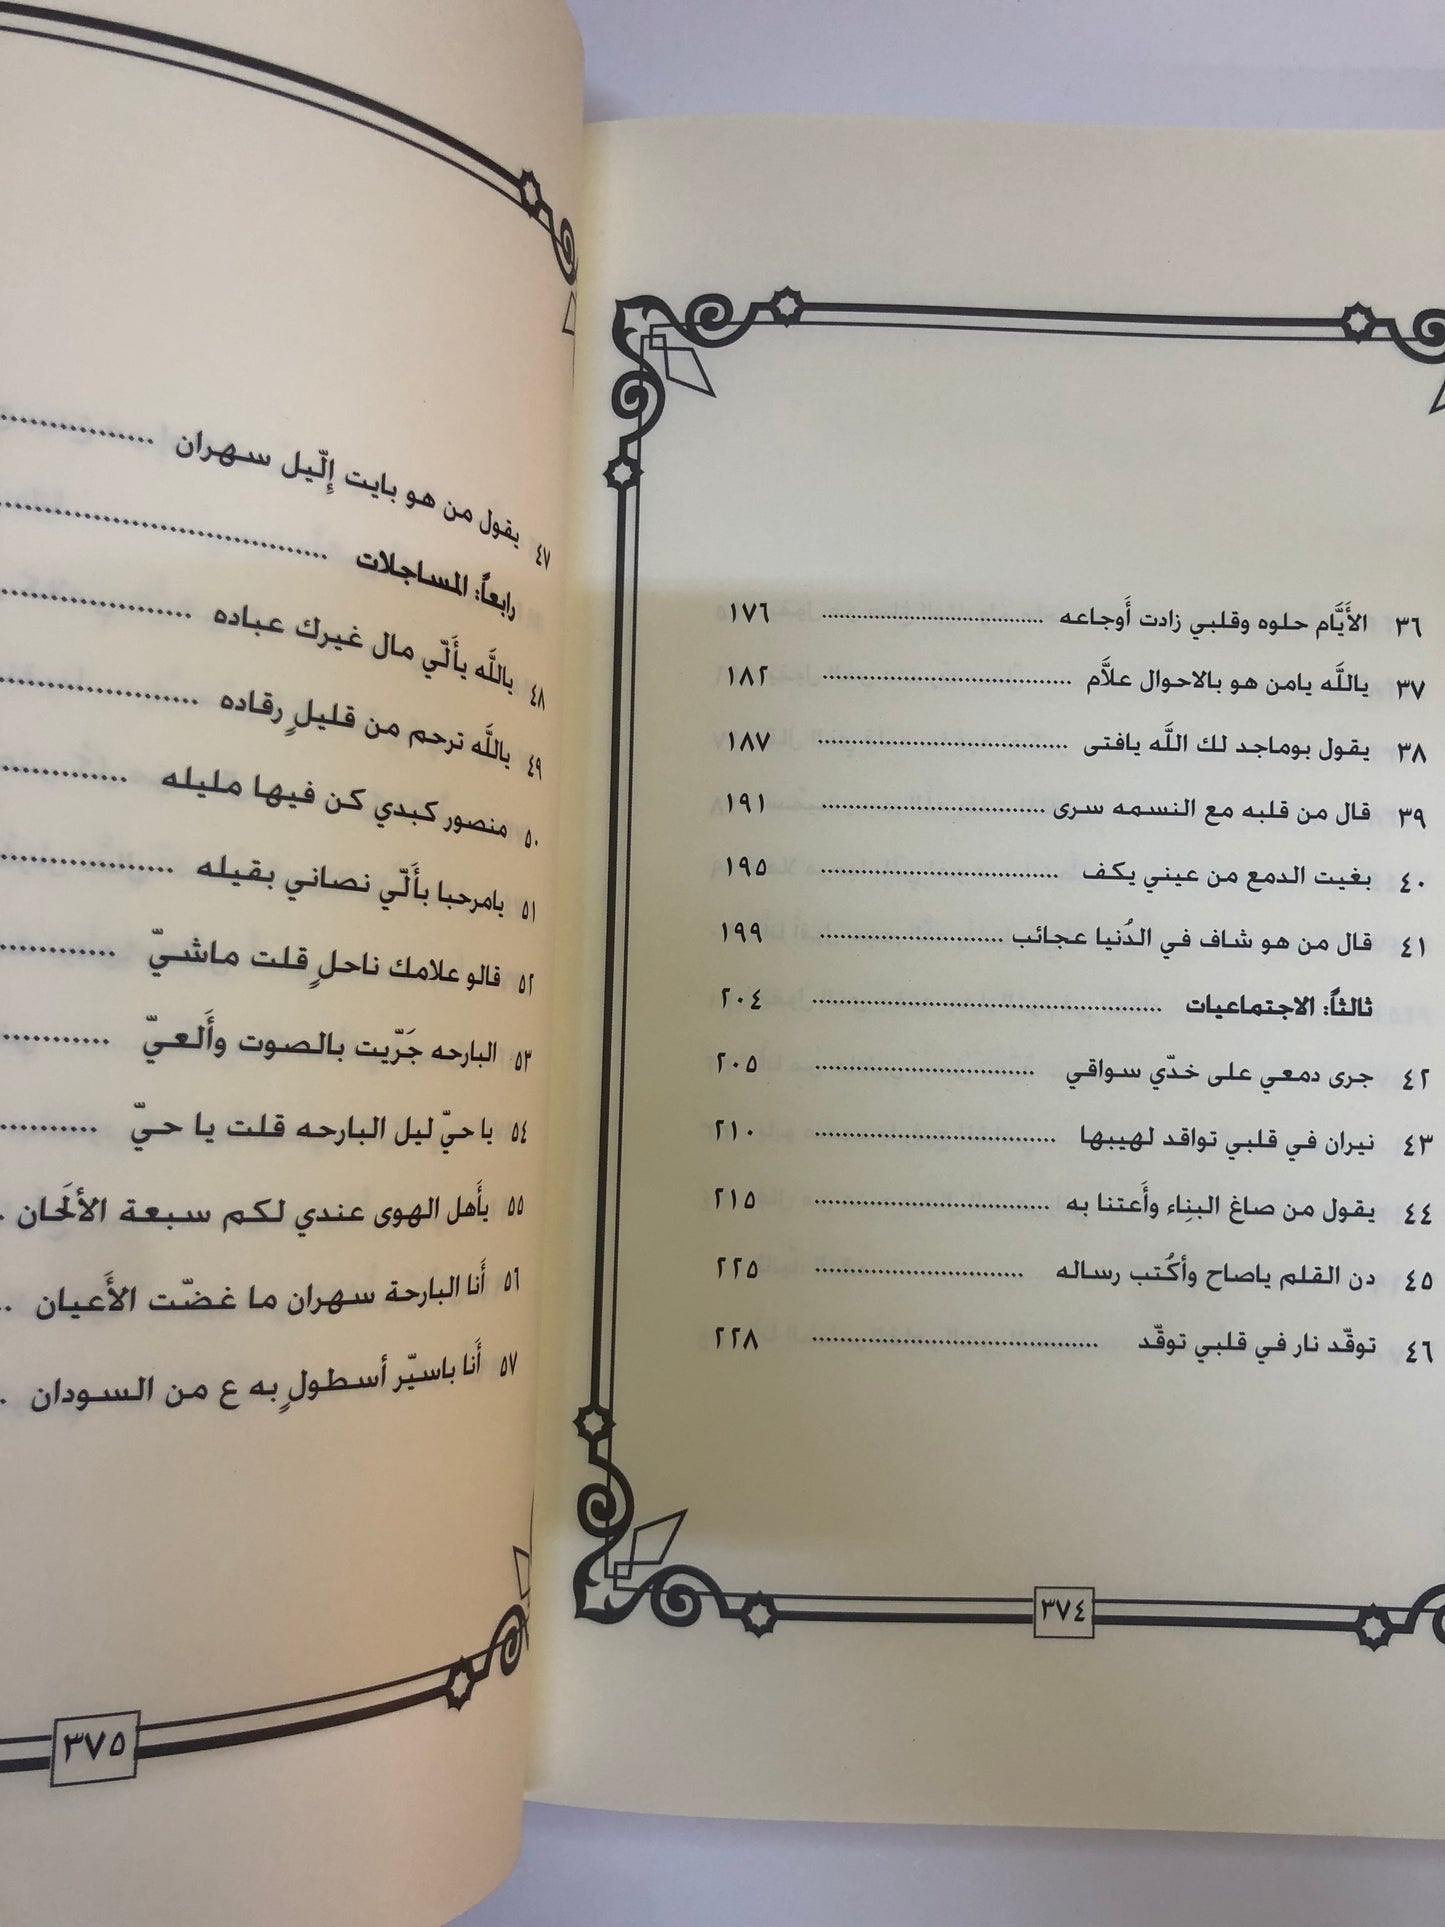 ٣٦ الأَيَّام حلوه وقلبي زادت أَوجاعه ........ ١٧٦
٣٧ ياللَّه يامن هو بالاحوال علاَّم ........ ١٨٢
٣٨ يقول بوماجد لك اللَّه يافتى ........ ١٨٧
٣٩ قال من قلبه مع النسمه سرى ........ ١٩١
٤٠ بغيت الدمع من عيني يكف ........ ١٩٥
٤١ قال من هو شاف في الدُنيا عجائب ........ ١٩٩
ثالثاً: الاجتماعيات ........ ٢٠٤
٤٢ جرى دمعي على خدّي سواقي ........ ٢٠٥
٤٣ نيران في قلبي تواقد لهيبها ........ ٢١٠
٤٤ يقول من صاغ البنِاء وأَعتنا به ........ ٢١٥
٤٥ دن القلم ياصاح وأكُتب رساله ........ ٢٢٥
٤٦ توقّد نار في قلبي توقّد ........ ٢٢٨
٣٧٤
٤٧ يقول من هو بايت إِلّيل سهران ........
رابعاً: المساجلات ........
٤٨ ياللَّه يأَلّي مال غيرك عباده ........
٤٩ ياللَّه ترحم من قليلٍ رقاده ........
٥٠ منصور كبدي كن فيها مليله ........
٥١ يامرحبا بأَلّي نصاني بقيله ........
٥٢ قالو علامك ناحلٍ قلت ماشيّ ........
٥٣ البارحه جَرّيت بالصوت وأَلعيّ ........
٥٤ يا حيّ ليل البارحه قلت يا حيّ ........
٥٥ يأَهل الهوى عندي لكم سبعة الألَحان .
٥٦ أَنا البارحة سهران ما غضّت الأَعيان ..
٥٧ أَنا باسيّر أسطولٍ به ع من السودان .
٣٧٥